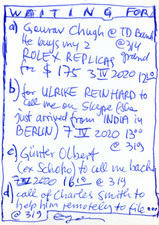 WAITING FOR
a) Gourav Chugh @ TD Bank
He buys my 2 @ 319
ROLEX REPLICAS grand
for $ 175 3 IV 2020 1300
b) for ULRIKE REINHARD to
call me on Skype (she
just arrived from INDIA in
BERLIN) 7 IV 2020 13°°
@ 319
c) Günter Olbert
(ex Schoko) to call me back
7 IV 2020 16°° @ 319
d) call of Charles Smith to
help him remotely to file ...
@ 319